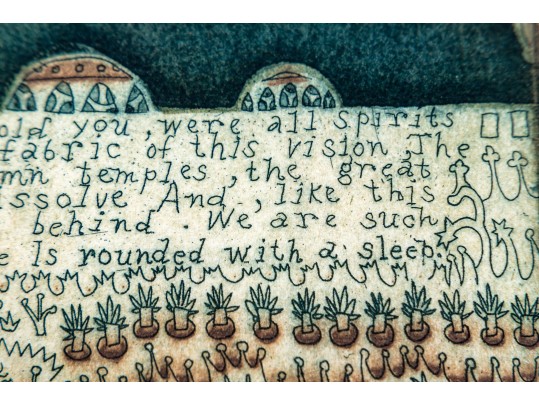 old you , were all spirits
fabric of this vision , The
mn temples , the great
issolve And , like this
behind . We are such
e Is rounded with a sleep .